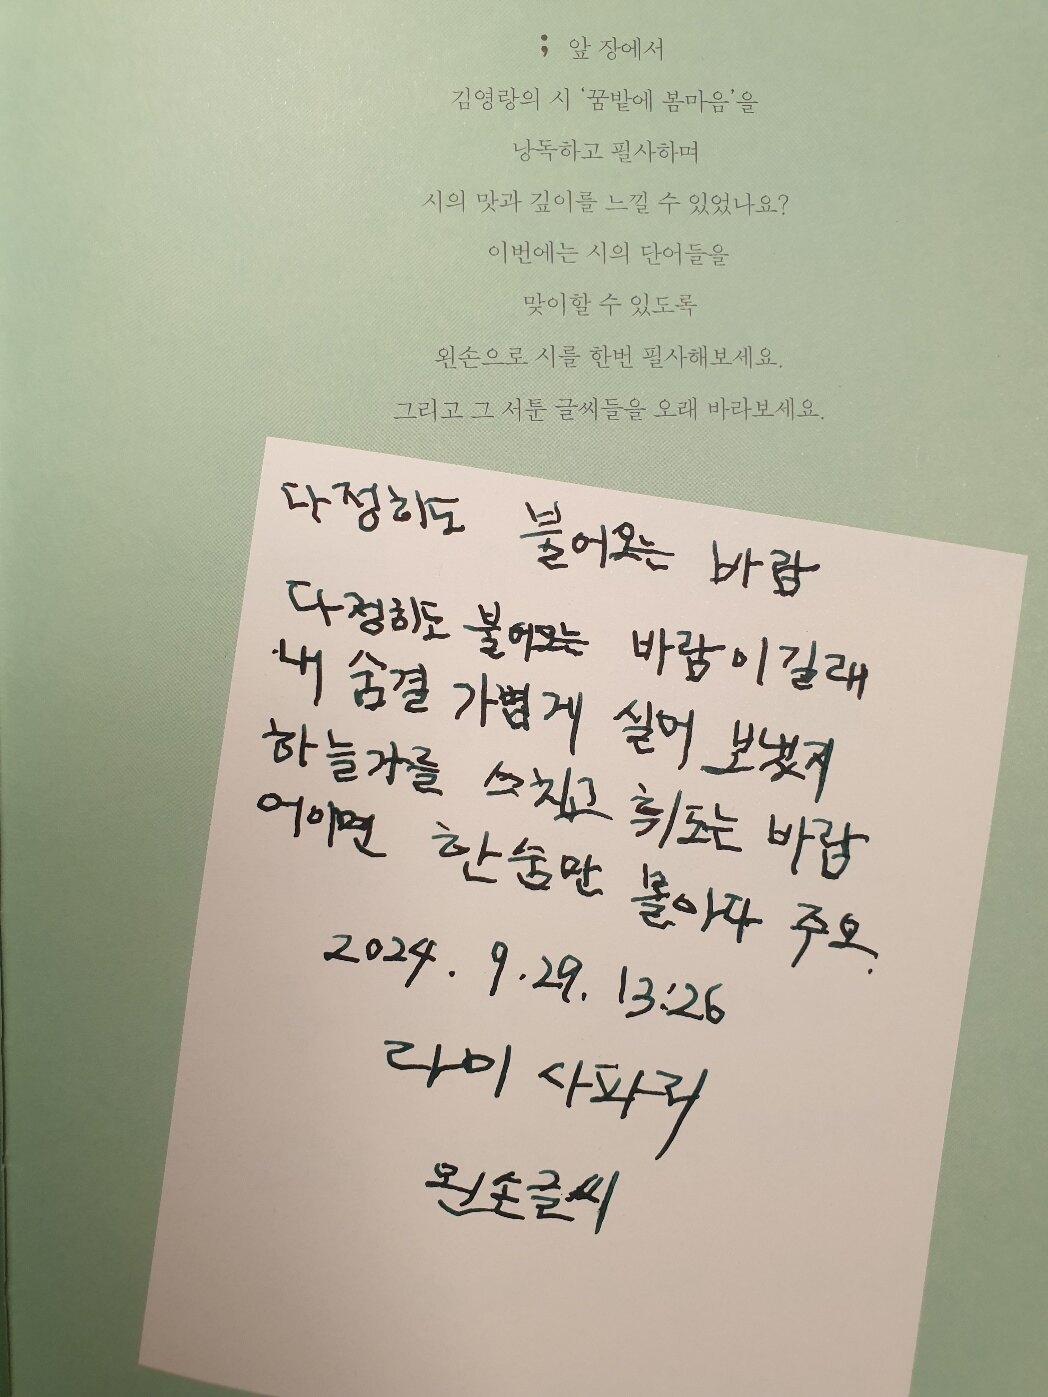 ; 앞 장에서
김영랑의 시 ‘꿈밭에 봄마음’을
낭독하고 필사하며
시의 맛과 깊이를 느낄 수 있었나요?
이번에는 시의 단어들을
맞이할 수 있도록
왼손으로 시를 한번 필사해보세요.
그리고 그 서툰 글씨들을 오래 바라보세요.
다정히도 불어오는 바람
다정히도 불어오는 바람이길래
내 숨결 가볍게 실어 보냈지
하늘가를 스치고 휘도는 바람
어이면 한숨만 몰아다 주오.
2024. 9. 29. 13:26
라미 사파리
왼손글씨